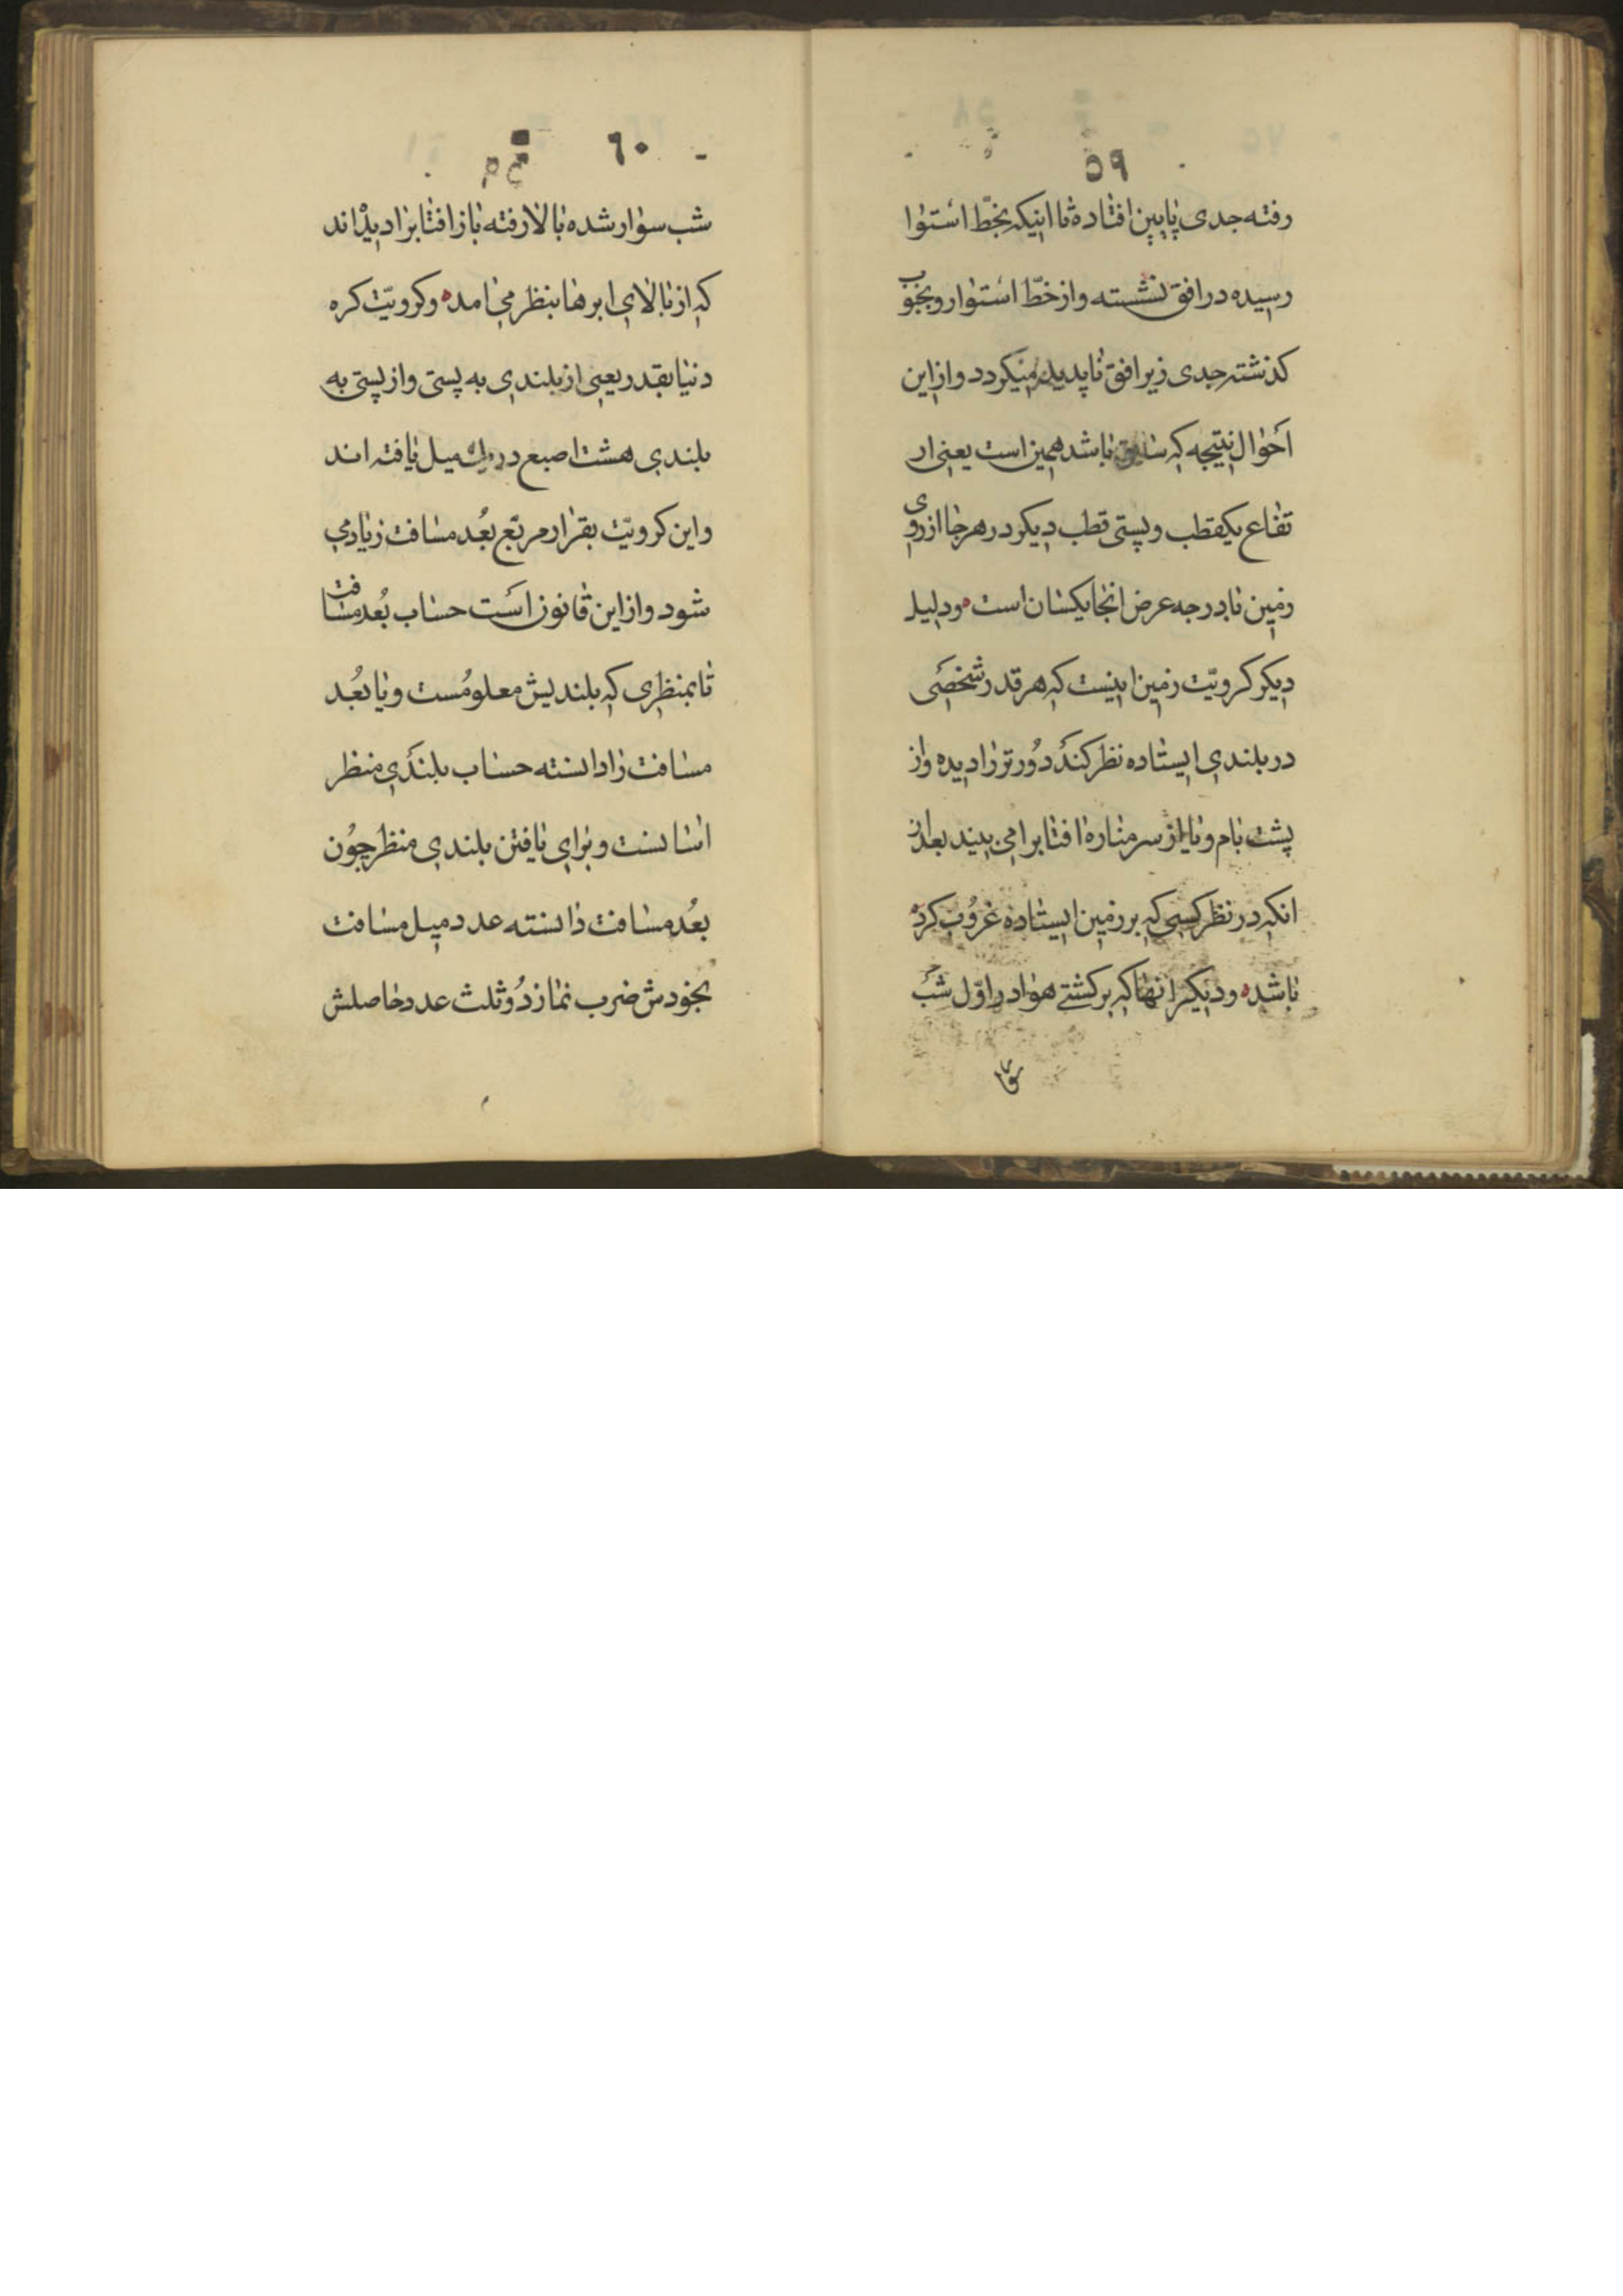 ٥٩
رفته جدی پایین افتاده تا اینکه بخطّ استوا
رسیده در افق نشسته و از خطّ استوا رو بجنوب
کذشته جدی زیر افق ناپدید میکردد و از این
احوال نتیجه که باشد همین است یعنی ار
تفاع یکقطب و پستی قطب دیکر در هر جا از روی
زمین تا درجه عرض انجا یکسان است ودلیل
دیکر کرویّت زمین اینست که هر قدر شخصی
در بلندی ایستاده نظر کند دُورتر را دیده و از
پشت بام و یا از سر مناره افتابرا می بیند بعد از
انکه در نظر کسی که بر زمین ایستاده غرُوب کرده
باشد ودیکر انها که بر کشتی هوا در اوّل شب
٦٠
شب سوار شده بالا رفته باز افتابرا دیده اند
که از بالای ابرها بنظر می امده و کرویّت کره
دنیا بقدر یعنی از بلندی به پستی و از پستی به
بلندی هشت اصبع در یک میل یافته اند
و این کرویّت بقرار مربّع بُعد مسافت زیاد می
شود و از این قانون است حساب بُعد مسافت
تا بمنظری که بلندیش معلومُست و یا بُعد
مسافت را دانسته حساب بلندی منظر
اسانست و برای یافتن بلندی منظر چوُن
بعُد مسافت دانسته عدد میل مسافت
بخودش ضرب نما از دُو ثلث عدد حاصلش